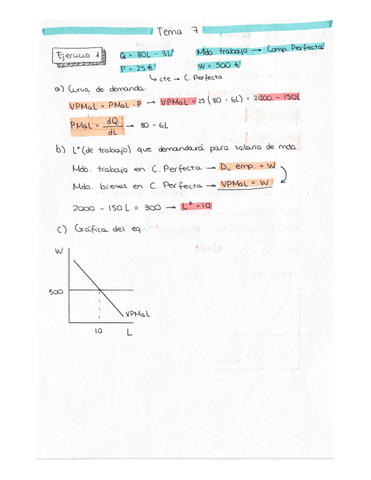 Tema 7
Ejercicio 1 Q = 80L - 3L² Mdo. trabajo → Comp. Perfecta
P = 25 € W = 500 €
↳ cte → C. Perfecta
a) Curva de demanda
VPMaL = PMaL · P → VPMaL = 25 (80 - 6L) = 2000 - 150L
PMaL = dQ/dL → 80 - 6L
b) L* (de trabajo) que demandará para salario de mdo.
Mdo. trabajo en C. Perfecta → DL emp. = W
Mdo. bienes en C. Perfecta → VPMaL = W
2000 - 150L = 500 → L* = 10
c) Gráfica del eq.
W
500
VPMaL
10 L